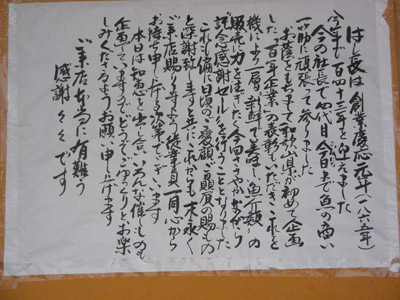 はし長は創業慶応元年(一八六五年)
今年で百四十三年を迎えました
今の社長で四代目今日まで魚の商い
一筋に頑張って参りました
お蔭をもちまして和歌山県が初めて企画
した「百年企業」の表彰をいただきこれを
機により一層新鮮で美味しい魚介類の
販売に力を注ぎたく今回ささやかながら
記念感謝セールを行うことになりました
これも偏に日頃のご愛顧ご贔屓の賜もの
と深謝致しますと共にこれからも末永く
ご来店賜りますよう従業員一同心から
お待ち申し上げる次第でございます
本日は知恵を出し合いいろんな催しものも
企画してございますのでどうぞごゆっくりとお楽
しみくださるようお願い申し上げます
ご来店本当に有難う
感謝々々です